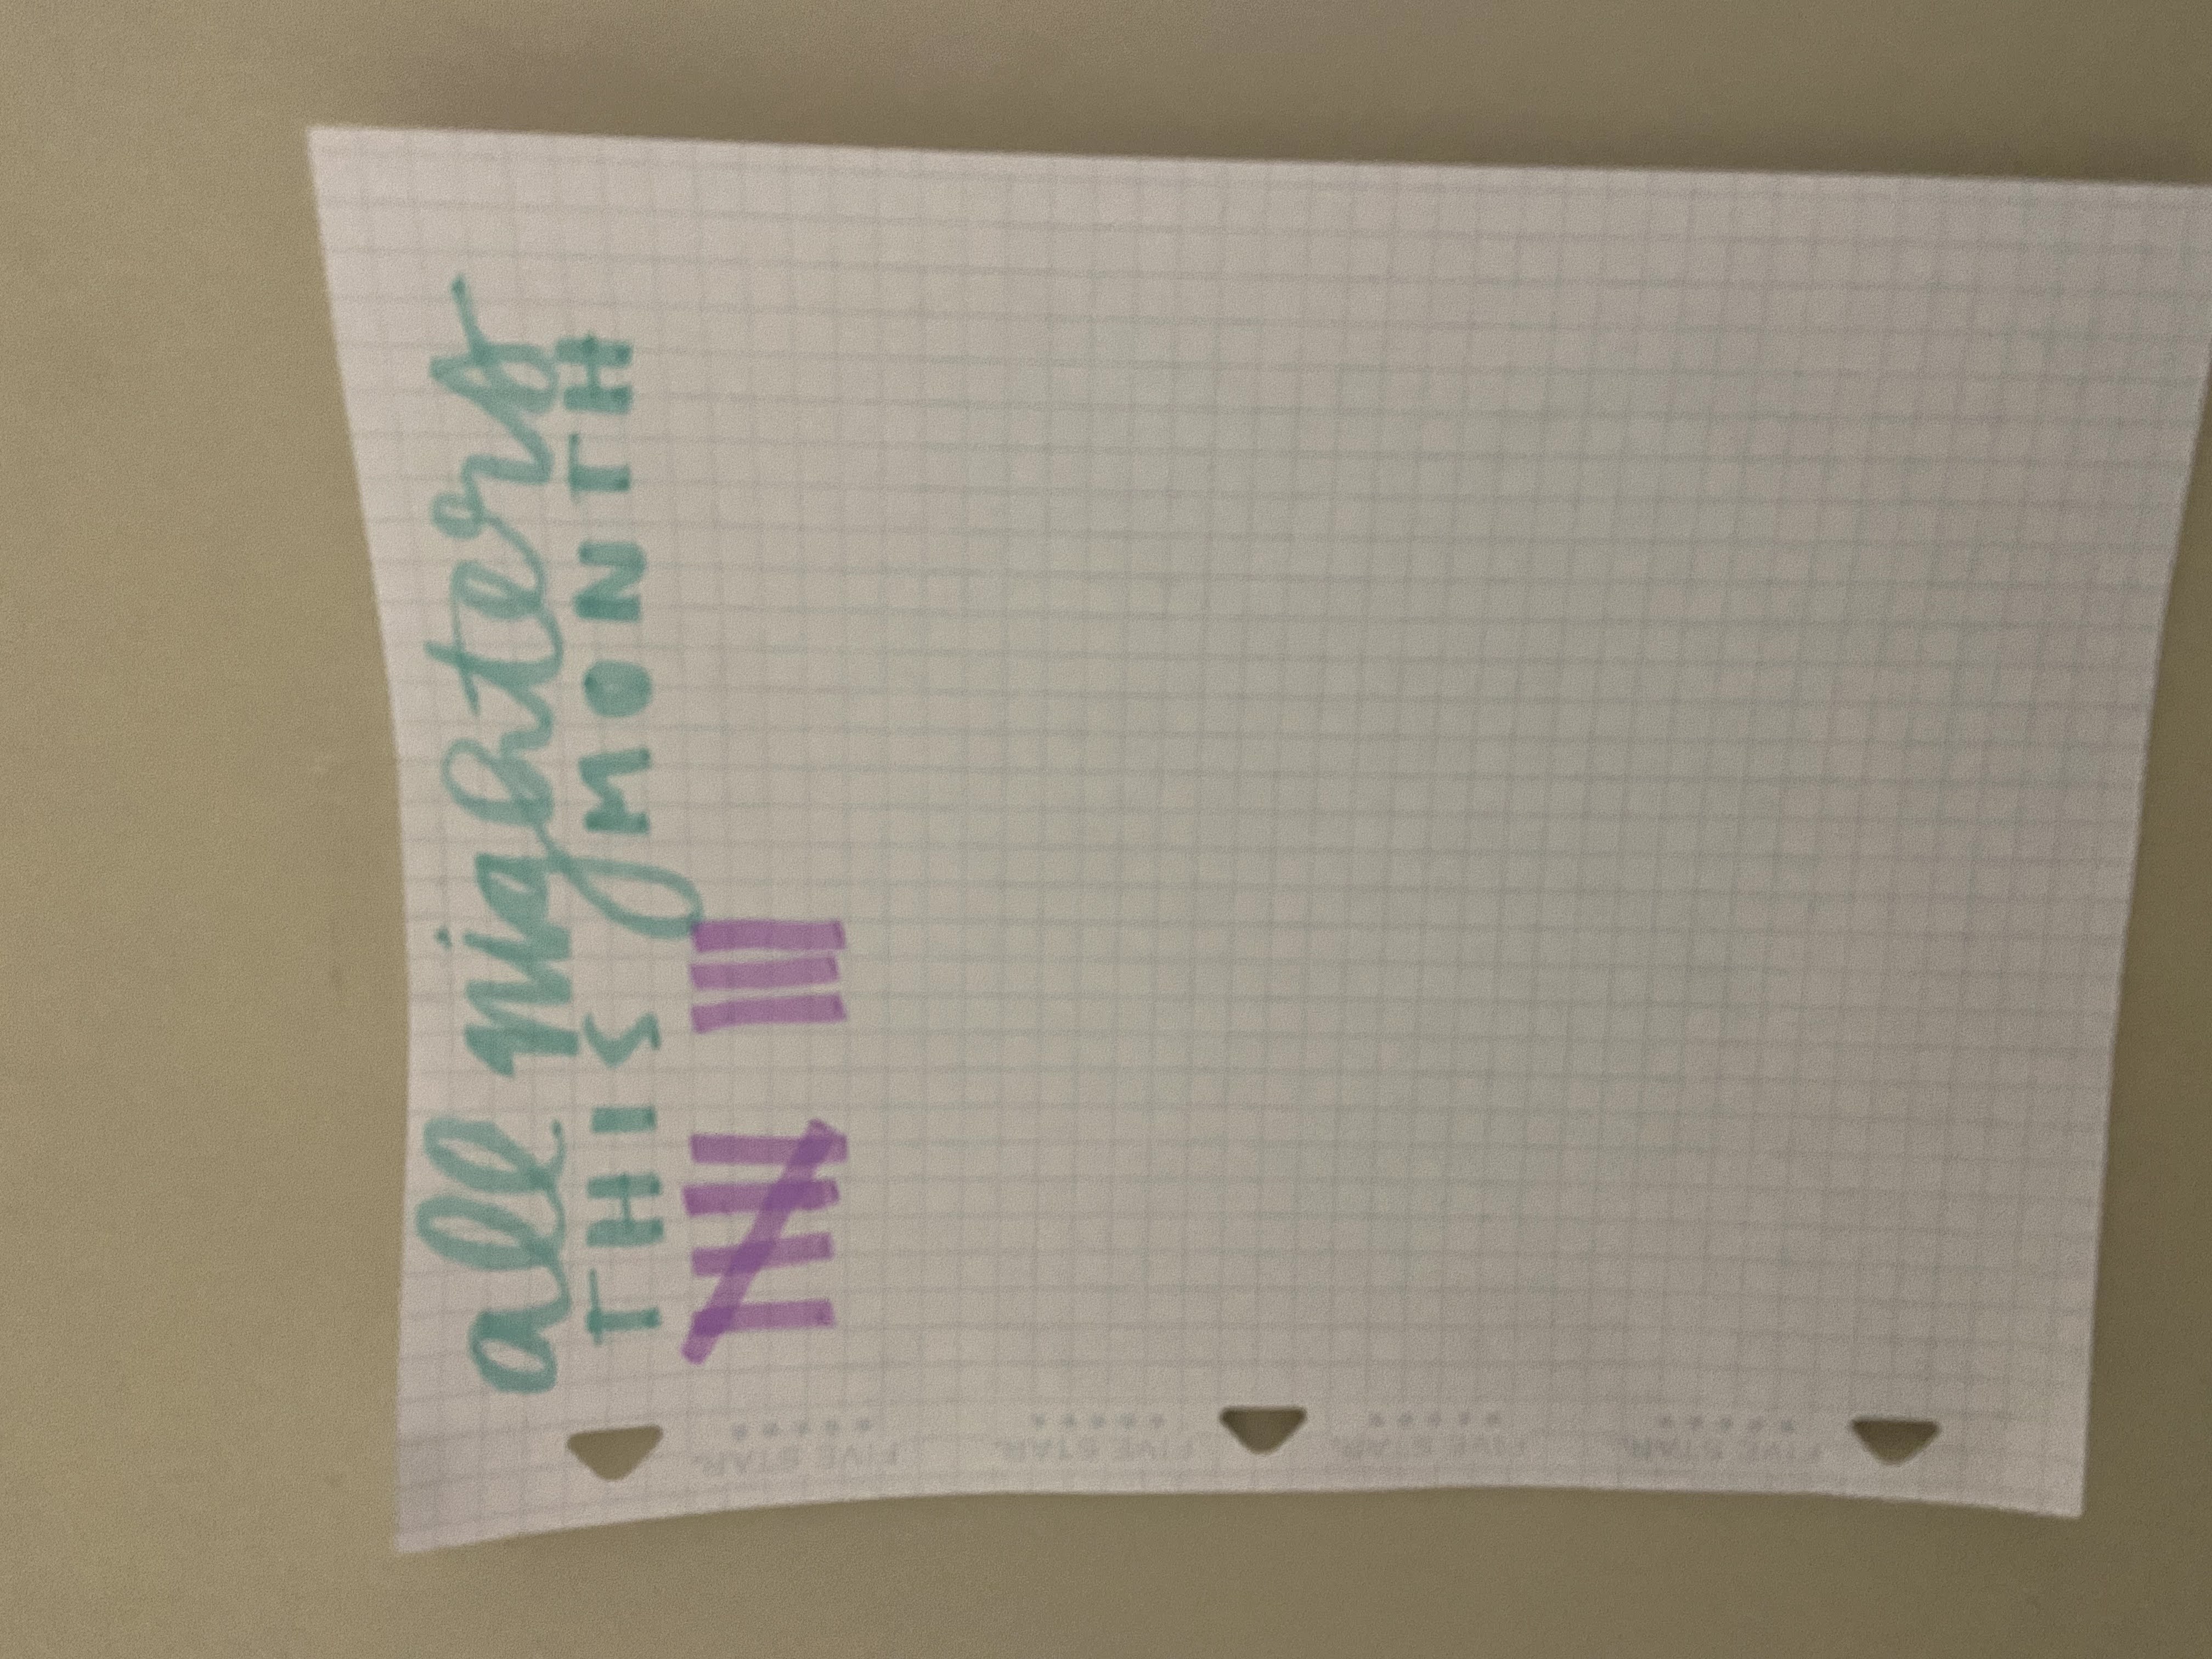 all nighters
THIS MONTH
FIVE STAR.
FIVE STAR.
FIVE STAR.
FIVE STAR.